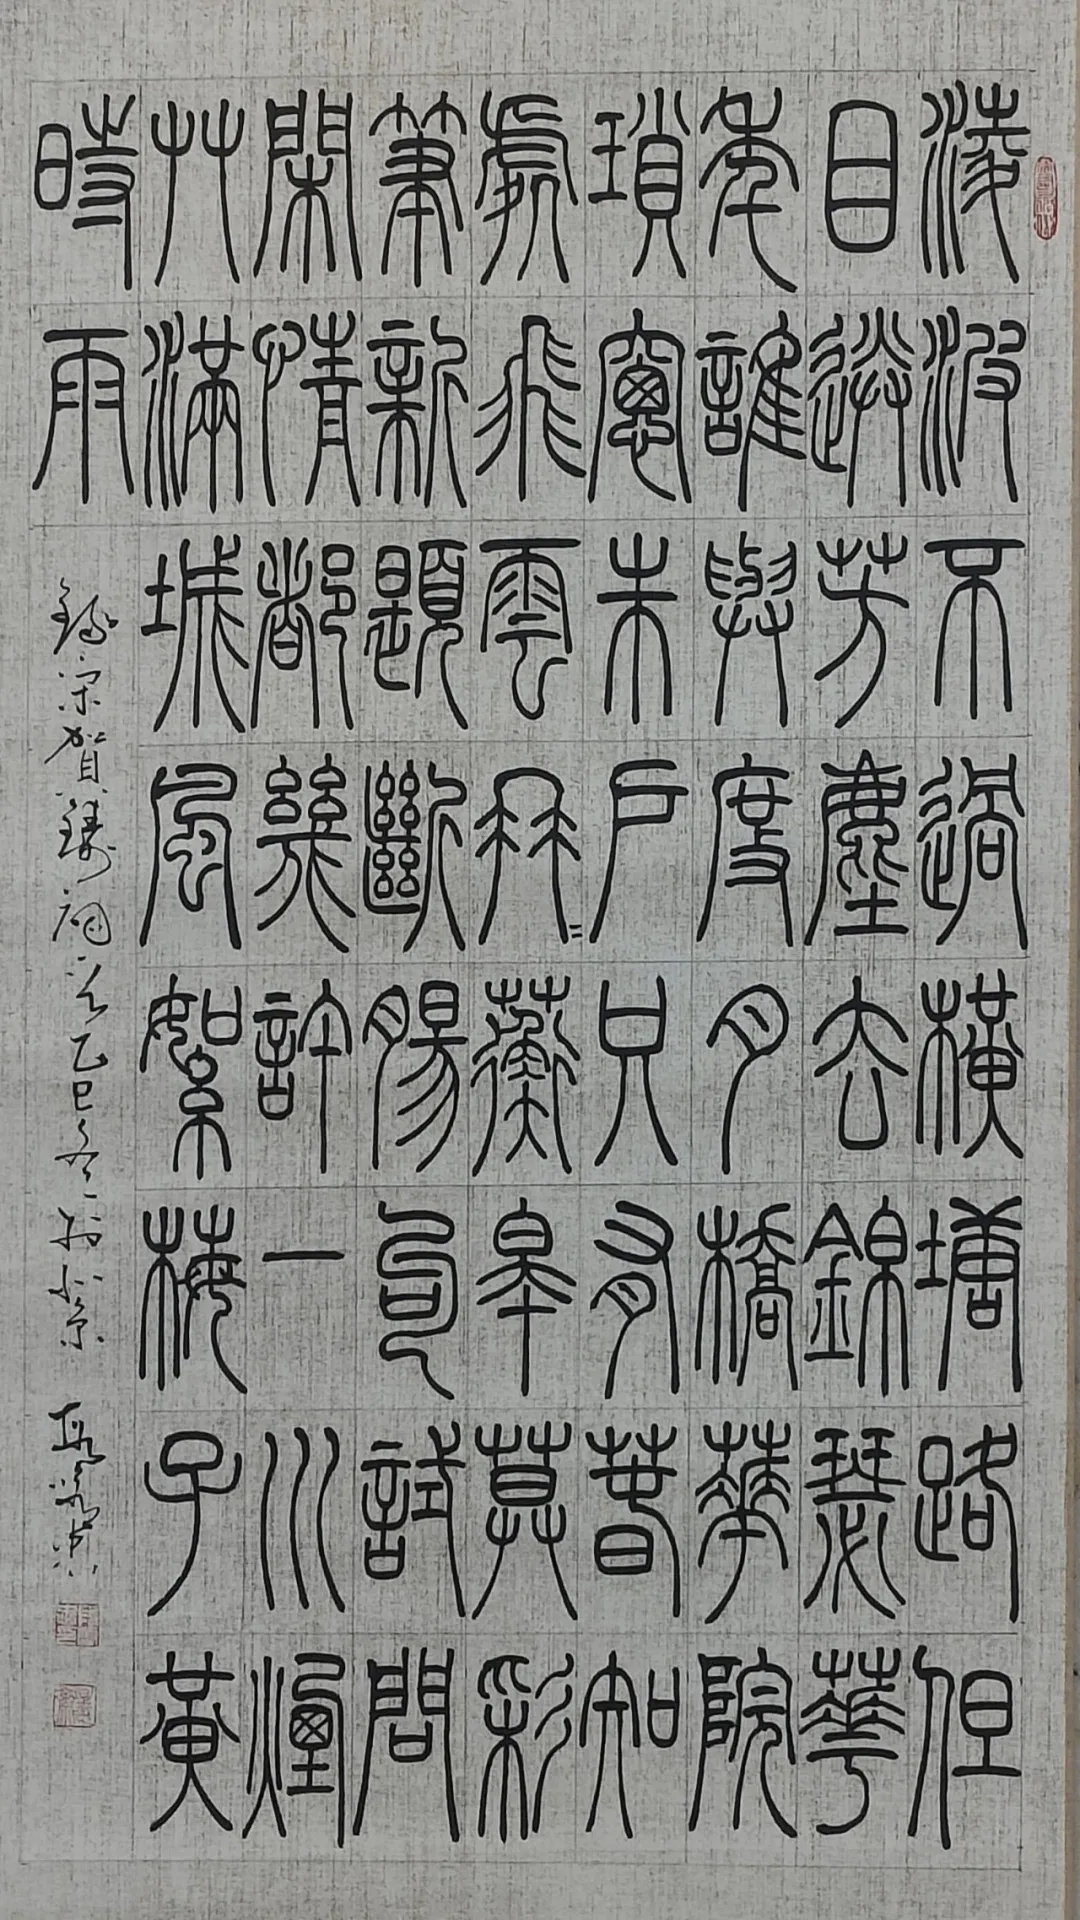 淩波不過橫塘路但
目送芳塵去錦瑟華
年誰與度月橋華院
瑣窻朱戶只有春知
處飛雲冉〻蘅皋莫彩
筆新題斷腸句試問
閑情都幾許一川煙
艸滿城風絮梅子黃
時雨
錄宋賀鑄詞 乙巳冬於北京